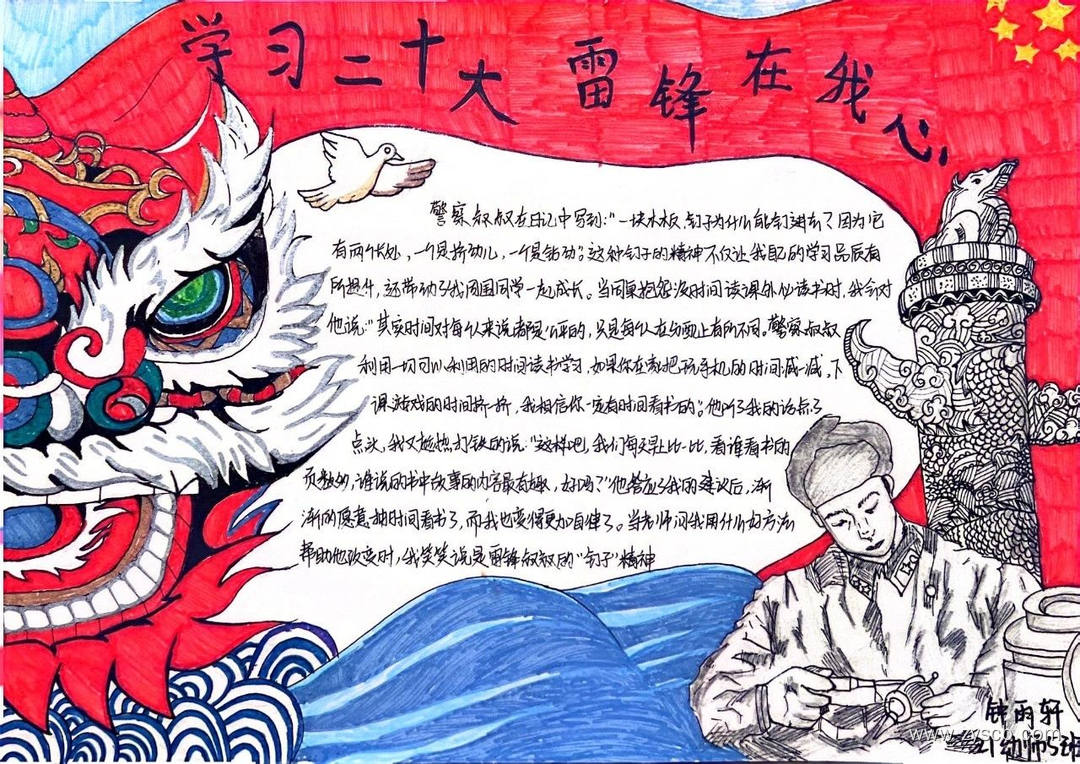 学习二十大 雷锋在我心
警察叔叔在日记中写到:"一块木板,钉子为什么能钉进去?因为它
有两个长处,一个是挤劲儿,一个是钻劲。"这种钉子的精神不仅让我自己的学习品质有
所提升,还带动了我周围同学一起成长。当同桌抱怨没时间读课外必读书时,我会对
他说:"其实时间对每个人来说都是公平的,只是每个人在分配上有所不同。警察叔叔
利用一切可以利用的时间读书学习,如果你在家把玩手机的时间减一减,下
课游戏的时间挤一挤,我相信你一定有时间看书的。"他听了我的话点了
点头,我又趁热打铁的说:"这样吧,我们每天早上比一比,看谁看书的
页数多,谁说的书中故事的内容最有趣,好吗?"他答应了我的建议后,渐
渐的愿意抽时间看书了,而我也变得更加自律了。当老师问我用什么好方法
帮助他改变时,我笑笑说是雷锋叔叔的"钉子"精神
钟雨轩
幼师5班
www.zysco.com